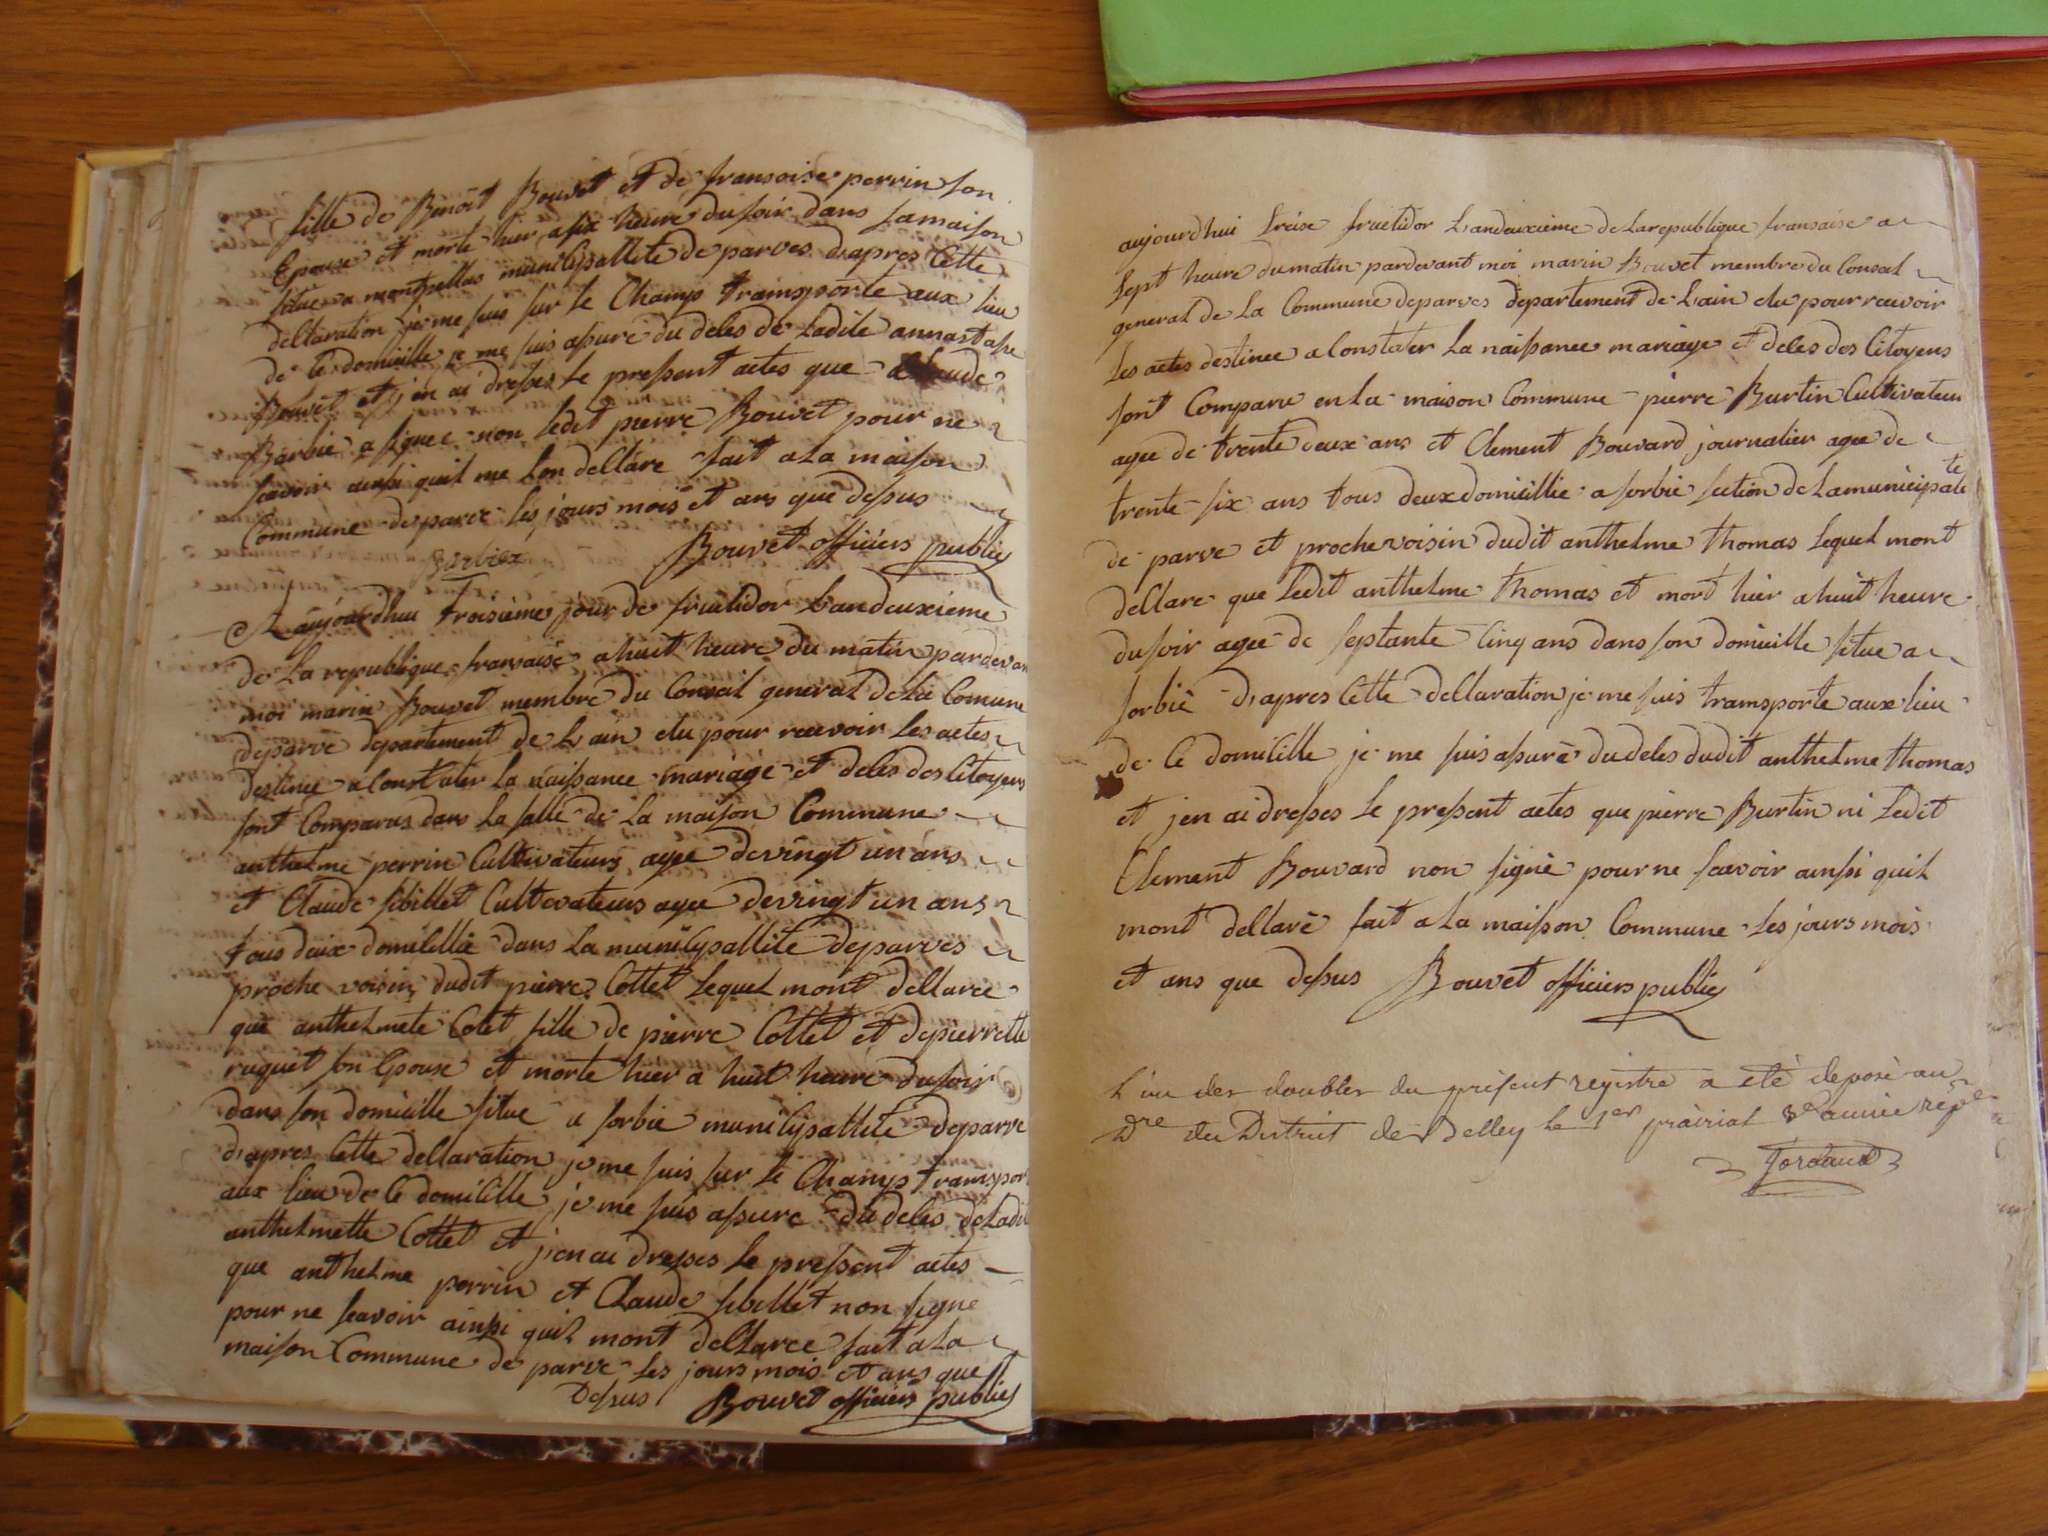 fille de Binoit Bouvet et de fransoise perrin son
Epouse et morte hier a six heure du soir dans sa maison
situé a montpellas municipallite de parves d'apres Cette
dellaration je me suis sur le Champs transporte aux lieu
de ce domicille je me suis assuré du deles de Ladite annastasse
Bouvet et j'en ai dresses le pressent actes que Claude
Barbié a signee non ledit pierre Bouvet pour ne
scavoir ainsi quil me Lon dellare fait a La maison
Commune de parve les jours mois et ans que dessus
Barbier Bouvet officiers public
aujourdhui troisieme jour de fructidor Landeuxieme
de La republique fransaise a huit heure du matin pardevan
moi marin Bouvet membre du Conseil general de La Comune
deparve departement de L'ain elu pour recevoir Les actes
destinee a Constater la naissance mariage et deles des Citoyens
sont Comparus dans La salle de La maison Commune
anthelme perrin Cultivateurs agee devingt un ans
et Claude sibillet Cultivateurs agee devingt un ans
tous deux domicillie dans La municipallite deparves
proche voisin dudit pierre Cottet Lequel mont dellaree
que anthelmete Cotet fille de pierre Cottet et depierrette
ruquet son Epouse et morte hier a huit heure du soir
dans son domicille situe a sorbie municipallite deparve
d'apres Cette dellaration je me suis sur le Champs transpor
aux lieu de ce domicille je me suis assure du deles de Ladi
anthelmette Cottet et j'en ai dresses le pressent actes
que anthelme perrin et Claude sibillet non signe
pour ne scavoir ainsi quil mont dellaree fait a La
maison Commune de parve les jours mois et ans que
Dessus Bouvet officiers public
aujourdhui treise fructidor L'andeuxieme de La republique fransaise a
sept heure du matin pardevant moi marin Bouvet membre du Conseil
general de La Commune deparves departement de L'ain elu pour recevoir
Les actes destinee a Constater La naissance mariage et deles des Citoyens
sont Comparu en La maison Commune pierre Burtin Cultivateur
agee de trente deux ans et Clement Bouvard journalier agee de
trente six ans tous deux domicillie a sorbie section de La municipalité
de parve et proche voisin dudit anthelme thomas Lequel mont
dellare que Ledit anthelme thomas et mort hier a huit heure
du soir agee de septante Cinq ans dans son domicille situe a
sorbiè d'apres Cette dellaration je me suis transporte aux lieu
de Ce domicille je me suis assurè du deles dudit anthelme thomas
et jen ai dresses le pressent actes que pierre Burtin ni Ledit
Clement Bouvard non signè pour ne scavoir ainsi quil
mont dellarè fait a La maison Commune les jours mois
et ans que dessus Bouvet officiers public
L'un des doubles du présent registre a été déposé au
Dre du District de Belley le 1er prairial 3e année repe
Jordand